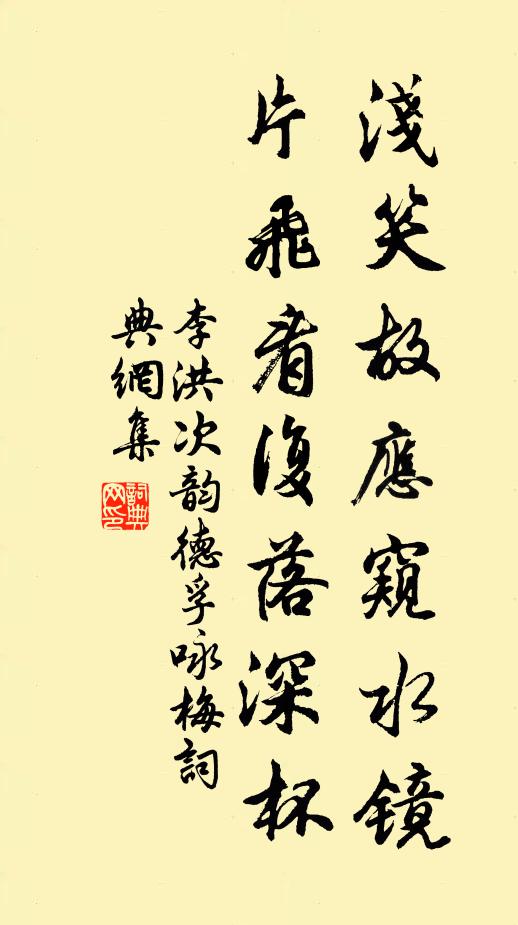 淺笑故應窺水鏡
片飛看復落深杯
李洪次韵德孚咏梅詞
典網集
詞典網印